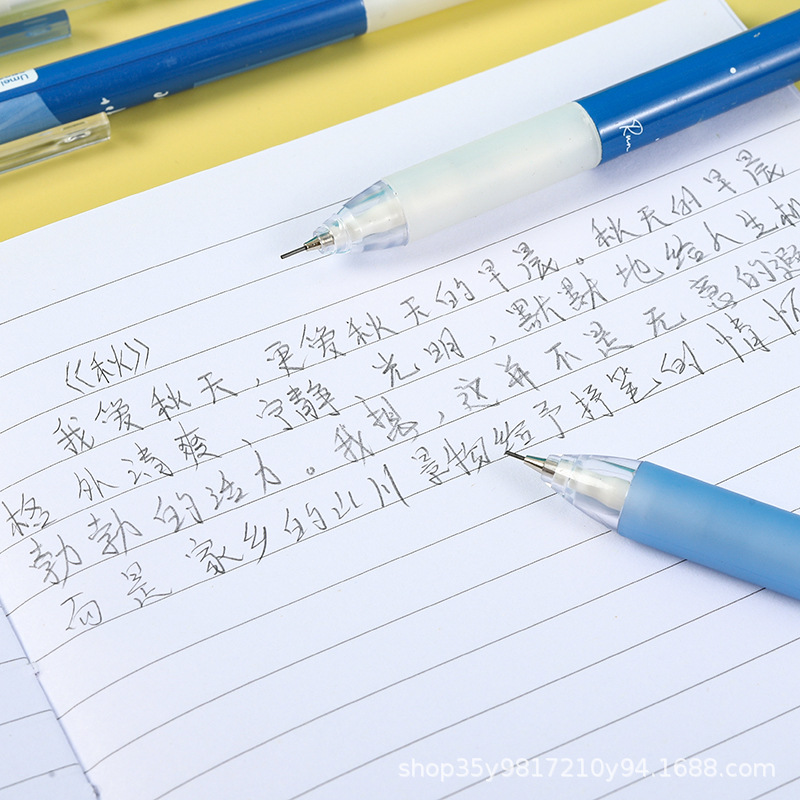 Umei
Run
《秋》
我爱秋天,更爱秋天的早晨。秋天的早晨
格外清爽 宁静 光明,默默地给人生机
勃勃的活力。我想,这并不是无意的遐
而是家乡的山川景物给予持笔的情怀
shop35y9817210y94.1688.com